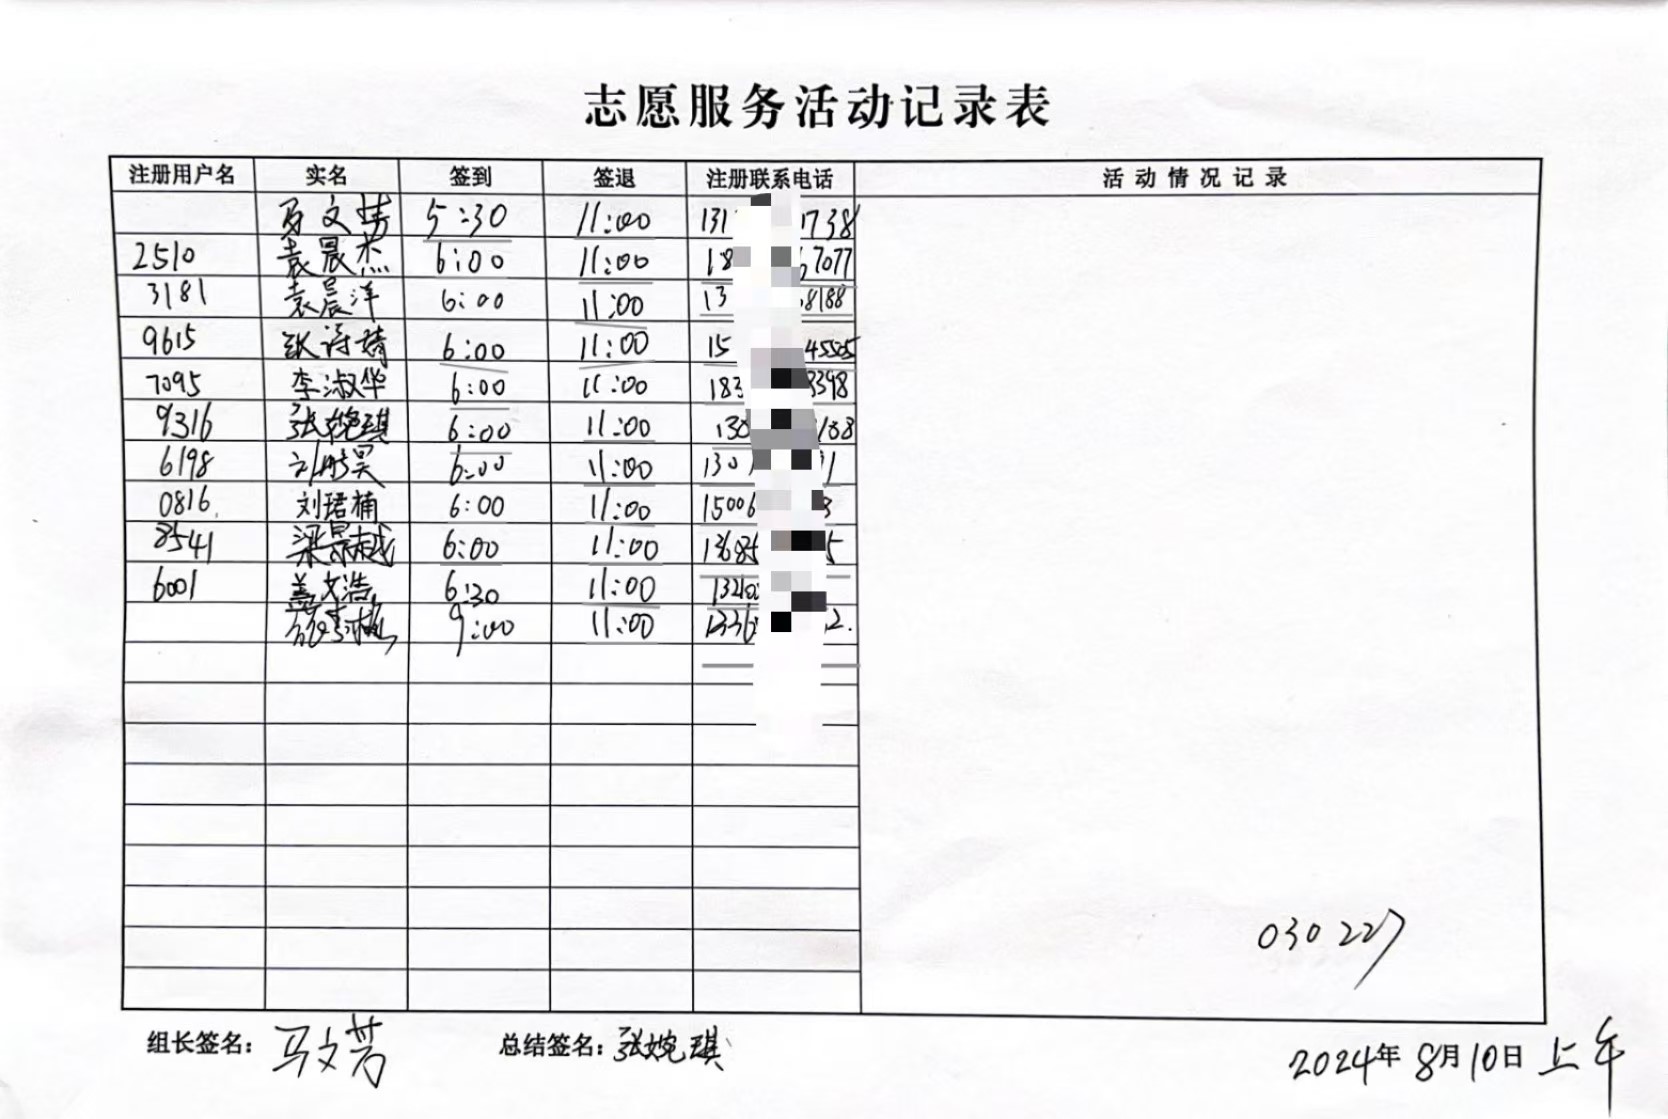 志愿服务活动记录表
注册用户名 实名 签到 签退 注册联系电话 活动情况记录
马文芳 5:30 11:00 131 1738
2510 袁晨杰 6:00 11:00 18 67077
3181 袁晨洋 6:00 11:00 13 8188
9615 张诗婧 6:00 11:00 15 45505
7095 李淑华 6:00 11:00 183 8398
9316 张婉琪 6:00 11:00 138 188
6198 刘 昊 6:00 11:00 130 1
0816 刘珺楠 6:00 11:00 15006 3
8541 梁景越 6:00 11:00 13685 5
6001 姜文浩 6:30 11:00 1321
9:00 11:00 1336 2.
030227
组长签名: 马文芳 总结签名: 张婉琪 2024年8月10日 上午